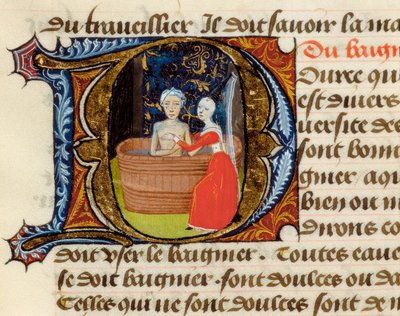 du traueillier Il doit sauoir la ma
Du baign
Duree qui
est diuers
uersite des
sont boin
gnier aqu
bien ou m
dirons co
doit vser le baignier . Toutes eaue
se doit baignier . sont doulces ou da
Celles qui ne sont doulces sont de m